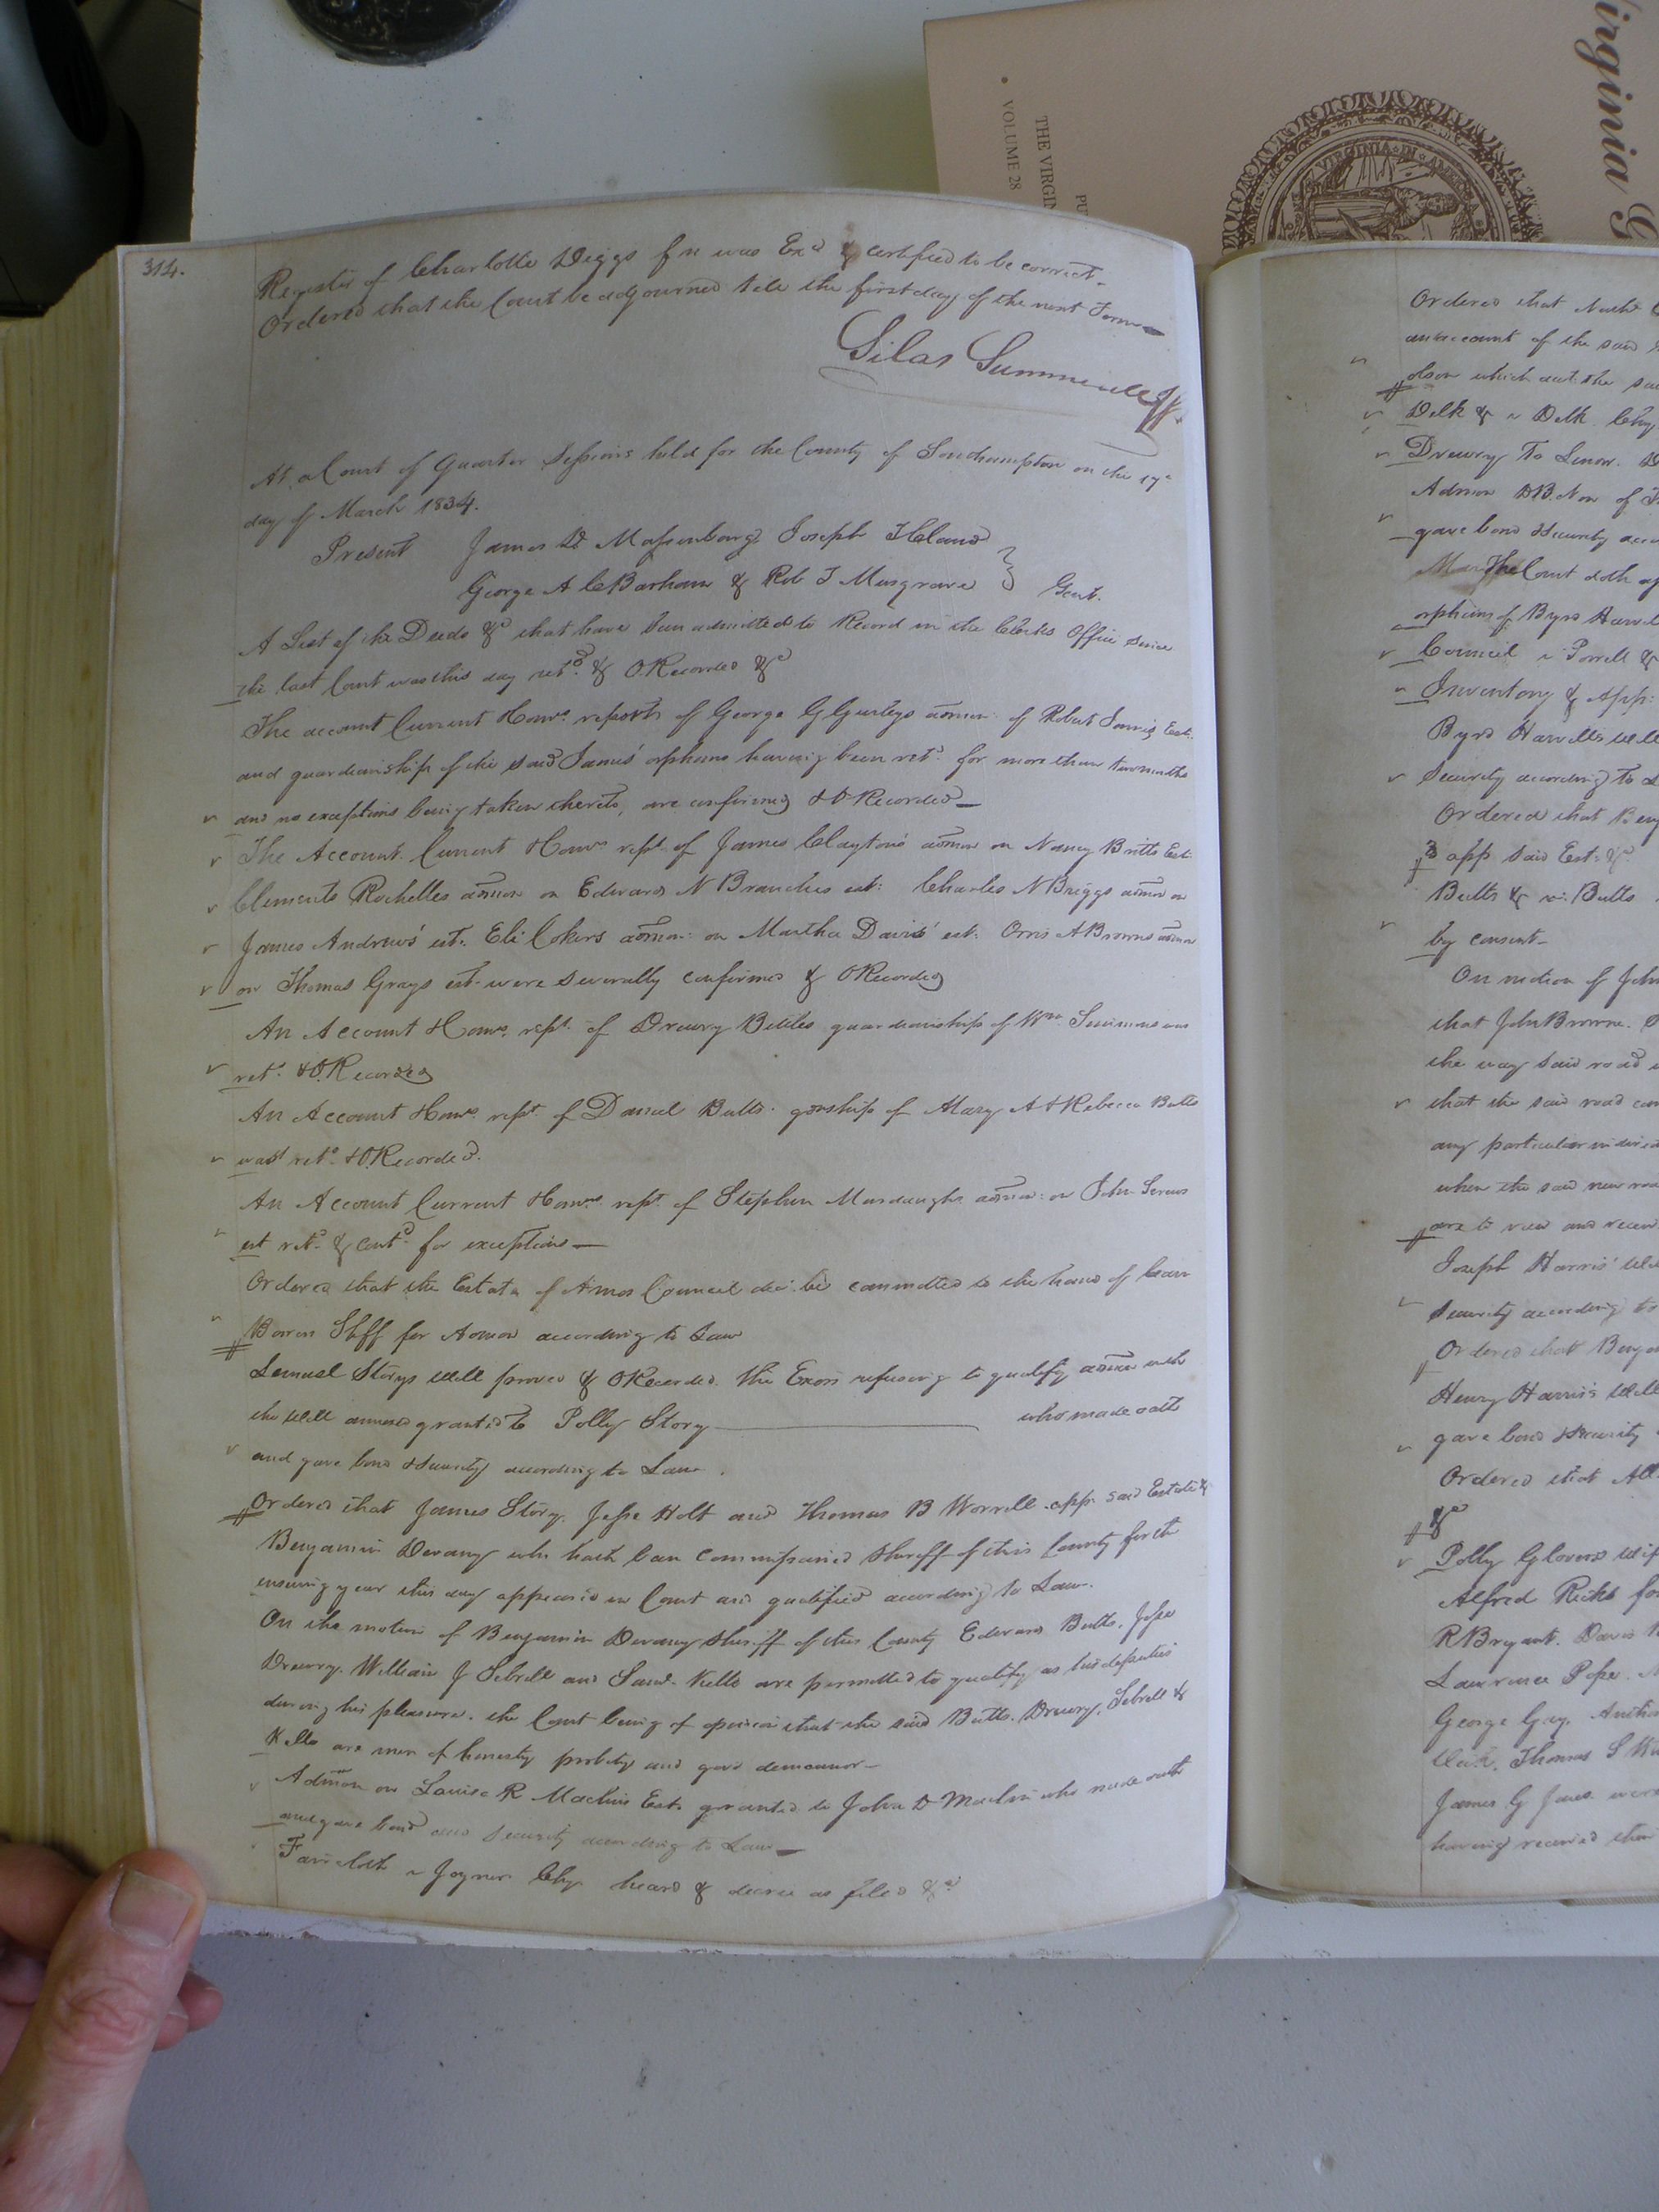 irginia G
THE VIRGIN
VOLUME 28
PU
VIRGINIA IN A
314.
Register of Charlotte Diggs fn was Exd & certified to be correct.
Ordered that the Court be adjourned till the first day of the next Term
Silas Summerell
At a Court of Quarter Sessions held for the County of Southampton on the 17
day of March 1834.
Present James D Massenburg Joseph T Claud
George A C Barham & Rob T Musgrave } Gent.
A List of the Deeds &c that have been admitted to Record in the Clerks Office since
the last Court was this day retd & O Recorded &c
The account Current & Comrs reports of George G Gurleys admon of Robert James Est.
and guardianship of the said James' orphans having been retd for more than two months
and no exceptions being taken thereto, are confirmed & O Recorded
The Account Current & Comrs rept of James Claytons admon on Nancy Britts Est
Clements Rochelles admon on Edward N Branches est: Charles N Briggs admon on
James Andrews' est. Eli Cokers admon: on Martha Davis' est: Orris A Browns admon
on Thomas Grays est. were severally confirmed & O Recorded
An Account & Comrs rept. of Drewry Bittles guardianship of Wm Simmons was
retd. & O. Recorded
An Account & Comrs rept of Daniel Butts. gdnship of Mary A & Rebecca Butts
was retd. & O. Recorded.
An Account Current & Comrs rept of Stephen Murdaugh admon: on John
est retd. & Contd for exceptions
Ordered that the Estate of Amos Council decd. be committed to the hands of Carr
Bowers Shff for Admon according to Law
Lemuel Storys Will proved & O Recorded. The Exors refusing to qualify admon with
the Will annexed granted to Polly Story who made oath
and gave bond & security according to Law.
Ordered that James Story, Jesse Holt and Thomas B Worrell app said Estate &c
Benjamin Devany who hath been commissioned Sheriff of this County for the
ensuing year this day appeared in Court and qualified according to Law.
On the motion of Benjamin Devany Sheriff of this County Edward Butts, Jesse
Drewry, William J Sebrell and Saml. Kello are permitted to qualify as his deputies
during his pleasure. the Court being of opinion that the said Butts, Drewry, Sebrell &
Kello are men of honesty probity and good demeanor
Admon on Louisa R Maclins Est. granted to John D Maclin who made oath
and gave bond and security according to Law
Faircloth v Joyner Chy heard & decree as filed &c
Ordered that
an account of the said
which
Delk & v Delk Chy
Drewry To
Admon DB. Non of
gave bond & security acco
The Court doth
orphans of Byrd
Council v Powell &
Inventory & App:
Byrd Will
Security according to
Ordered that Benj
3 app said Est: &c
Butts & v: Butts
by consent
On motion of John
that John Browne.
the way said road
that the said road
any particular
when the said new road
are to view and
Joseph Harris' Will
Security according to
Ordered that Benja
Henry Harris's Will
gave bond & security
Ordered that All
&c
Polly Glovers
Alfred Ricks for
R Bryant. Davis
Lawrence Pope.
George Gay,
Thomas S
James G Jones
having received their